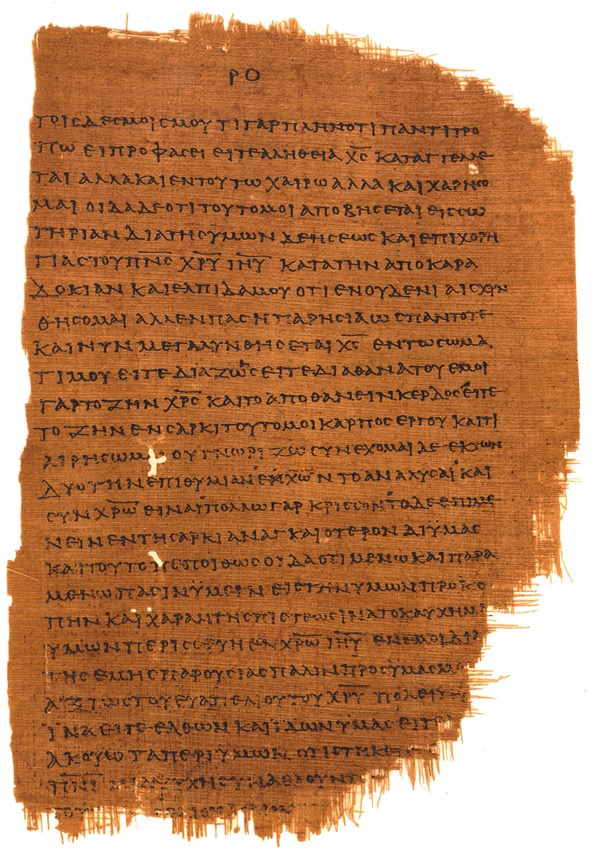 ΡΟ
ΤΟΙϹΔΕϹΜΟΙϹΜΟΥ ΤΙΓΑΡΠΛΗΝΟΤΙΠΑΝΤΙΤΡΟ
ΠΩ ΕΙΠΡΟΦΑϹΕΙ ΕΙΤΕΑΛΗΘΕΙΑ Χ̅Ϲ̅ ΚΑΤΑΓΓΕΛΛΕ
ΤΑΙ ΑΛΛΑΚΑΙΕΝΤΟΥΤΩ ΧΑΙΡΩ ΑΛΛΑ ΚΑΙ ΧΑΡΗϹΟ
ΜΑΙ ΟΙΔΑ ΔΕΟΤΙΤΟΥΤΟΜΟΙ ΑΠΟΒΗϹΕΤΑΙ ΕΙϹϹΩ
ΤΗΡΙΑΝ ΔΙΑΤΗϹΥΜΩΝ ΔΕΗϹΕΩϹ ΚΑΙΕΠΙΧΟΡΗ
ΓΙΑϹΤΟΥΠ̅Ν̅Ϲ̅ Χ̅Ρ̅Υ̅ Ι̅Η̅Υ̅ ΚΑΤΑΤΗΝ ΑΠΟΚΑΡΑ
ΔΟΚΙΑΝ ΚΑΙΕΛΠΙΔΑΜΟΥ ΟΤΙ ΕΝΟΥΔΕΝΙ ΑΙϹΧΥΝ
ΘΗϹΟΜΑΙ ΑΛΛΕΝΠΑϹΗΠΑΡΗϹΙΑ ΩϹΠΑΝΤΟΤΕ
ΚΑΙΝΥΝ ΜΕΓΑΛΥΝΘΗϹΕΤΑΙ Χ̅Ϲ̅ ΕΝΤΩϹΩΜΑ
ΤΙΜΟΥ ΕΙΤΕ ΔΙΑΖΩΗϹ ΕΙΤΕΔΙΑΘΑΝΑΤΟΥ ΕΜΟΙ
ΓΑΡΤΟΖΗΝ Χ̅Ρ̅Ϲ̅ ΚΑΙΤΟΑΠΟΘΑΝΕΙΝΚΕΡΔΟϹ ΕΙΤΕ
ΤΟ ΖΗΝ ΕΝϹΑΡΚΙΤΟΥΤΟΜΟΙΚΑΡΠΟϹ ΕΡΓΟΥ ΚΑΙΤΙ
ΑΙΡΗϹΩΜΑΙ ΟΥ ΓΝΩΡΙΖΩ ϹΥΝΕΧΟΜΑΙ ΔΕ ΕΚΤΩΝ
ΔΥΟ ΤΗΝΕΠΙΘΥΜΙΑΝ ΕΧΩΝ ΤΟ ΑΝΑΛΥϹΑΙ ΚΑΙ
ϹΥΝ Χ̅Ρ̅Ω̅ ΕΙΝΑΙ ΠΟΛΛΩΓΑΡ ΚΡΙϹϹΟΝ ΤΟ ΔΕ ΕΠΙΜΕ
ΝΕΙΝ ΕΝΤΗϹΑΡΚΙ ΑΝΑΓΚΑΙΟΤΕΡΟΝ ΔΙΥΜΑϹ
ΚΑΙΤΟΥΤΟ ΠΕΠΟΙΘΩϹ ΟΙΔΑ ΟΤΙ ΜΕΝΩ ΚΑΙ ΠΑΡΑ
ΜΕΝΩ ΠΑϹΙΝΥΜΕΙΝ ΕΙϹΤΗΝΥΜΩΝΠΡΟΚΟ
ΠΗΝ ΚΑΙ ΧΑΡΑΝΤΗϹΠΙϹΤΕΩϹ ΙΝΑΤΟΚΑΥΧΗΜΑ
ΥΜΩΝ ΠΕΡΙϹϹΕΥΗ ΕΝ Χ̅Ρ̅Ω̅ Ι̅Η̅Υ̅ ΕΝΕΜΟΙ ΔΙΑ
ΤΗϹ ΕΜΗϹ ΠΑΡΟΥϹΙΑϹ ΠΑΛΙΝΠΡΟϹΥΜΑϹ
ΑΞΙΩϹ ΤΟΥ ΕΥΑΓΓΕΛΙΟΥΤΟΥ Χ̅Ρ̅Υ̅ ΠΟΛΕΙΤΕΥ
ΙΝΑ ΕΙΤΕ ΕΛΘΩΝ ΚΑΙ ΙΔΩΝ ΥΜΑϹ ΕΙΤΕ
ΑΚΟΥΩ ΤΑΠΕΡΙΥΜΩΝ ΟΤΙϹΤΗΚΕ
Π̅Ν̅Ι̅ ΜΙΑ ΨΥΧΗ ϹΥΝΑΘΛΟΥΝ